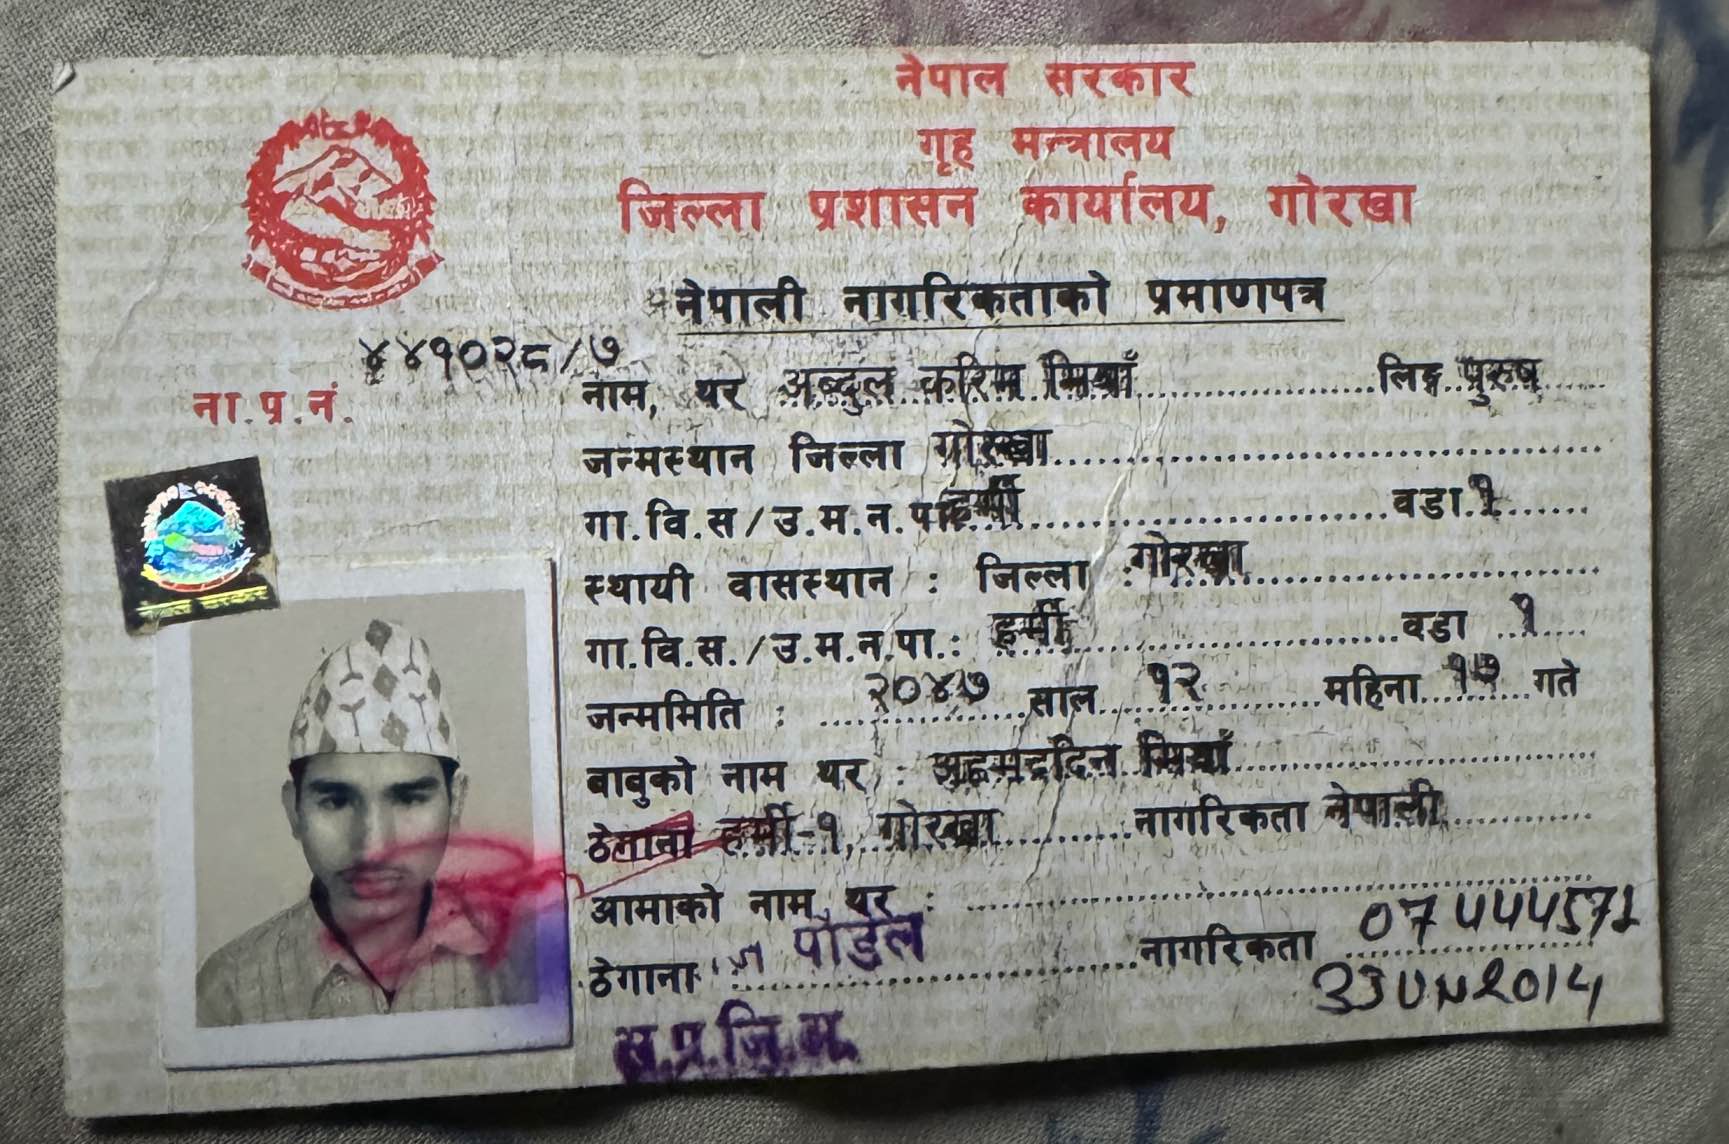 नेपाल सरकार
गृह मन्त्रालय
जिल्ला प्रशासन कार्यालय, गोरखा
नेपाली नागरिकताको प्रमाणपत्र
ना.प्र.नं. ४४१०२८/७
नाम, थर अब्दुल करिम मियाँ लिङ्ग पुरुष
जन्मस्थान जिल्ला गोरखा
गा.वि.स/उ.म.न.पा हर्मी वडा १
स्थायी वासस्थान : जिल्ला : गोरखा
गा.वि.स./उ.म.न.पा.: हर्मी वडा १
जन्ममिति : २०४७ साल १२ महिना गते
बाबुको नाम थर : मियाँ
ठेगाना हर्मी-१, गोरखा नागरिकता नेपाली
आमाको नाम थर :
ठेगाना पौडेल नागरिकता
स.प्र.जि.अ.
नेपाल सरकार